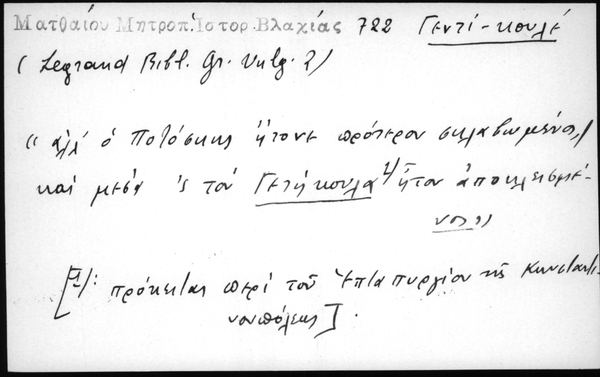 Ματθαίου Μητροπ. Ἱστορ. Βλαχίας 722 Γεντί-κουλέ
(Legrand Bibl. Gr. Vulg. 2)
« ἀλλ' ὁ Ποτόσκης ἤτονε πρότερον σκλαβωμένος,
καὶ μέσα 'ς τοῦ Γετήκουλα 1) ἦτον ἀποκλεισμέ-
νος»
[1): πρόκειται περὶ τοῦ Ἑπταπυργίου τῆς Κωνσταντι-
νουπόλεως].